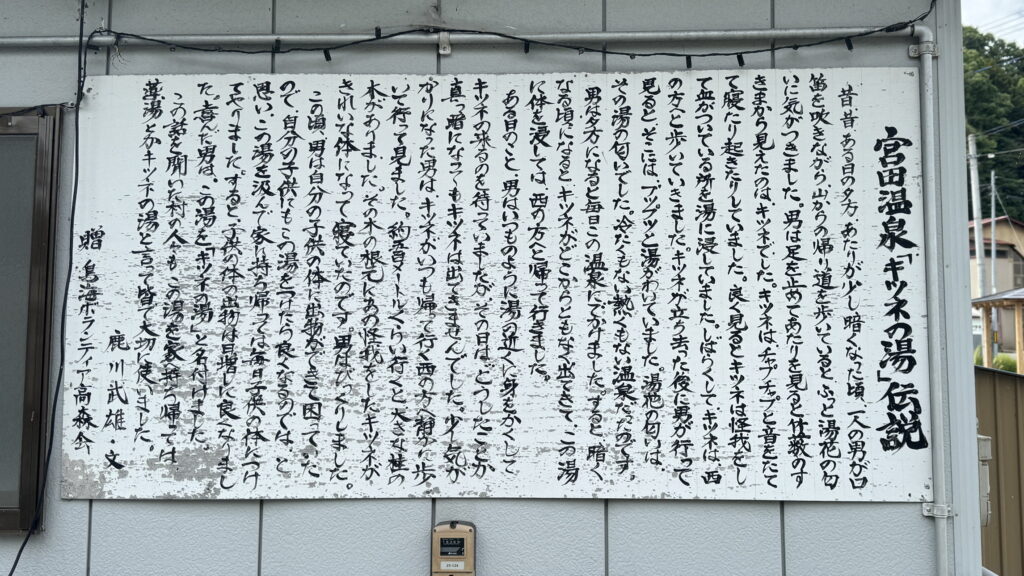 宮田温泉「キツネの湯」伝説
昔、昔ある日の夕方、あたりが少し暗くなった頃、一人の男が口
笛を吹きながら、山からの帰り道を歩いているとふっと湯花の匂
いに気がつきました。男は足を止めてあたりを見ると竹薮のす
きまから見えたのは、キツネでした。キツネは、チャプチャプと音をたて
て寝たり起きたりしていました。良く見るとキツネは怪我をし
て血がついている所を湯に浸していました。しばらくして、キツネは、西
の方へと歩いていきました。キツネが立ち去った後に男が行って
見ると、そこには、ブップッと湯がわいていました。湯花の匂いは、
その湯の匂いでした。冷たくもない熱くもない温泉だったのです。
男は夕方になると毎日この温泉にでかけました。すると暗く
なる頃になるとキツネがどこからともなく出てきて、この湯
に体を浸しては、西の方へと帰って行きました。
ある日のこと、男はいつものように湯の近くに身をかくして
キツネの来るのを待っていましたが、その日は、どうしたことか
真っ暗になってもキツネは出てきませんでした。少し気が
かりになった男は、キツネがいつも帰って行く西の方へ静かに歩
いて行って見ました。約百メートルくらい行くと大きな桂の
木がありました。その木の根元にあの怪我をしたキツネが
きれいな体になって寝ていたのです。男はびっくりしました。
この頃、男は自分の子供の体に出物ができて困っていた
ので、自分の子供にもこの湯をつけたら良くなるのでは、と
思い、この湯を汲んで家へ持ち帰っては毎日子供の体につけ
てやりました。すると、子供の体の出物は増しに良くなりまし
た。喜んだ男は、この湯を「キツネの湯」と名付けました。
この話を聞いた村の人々もこの湯を家へ持ち帰っては、
薬湯とかキツネの湯と言って皆で大切に使いました。
鹿川武雄・文
贈 鳥海ボランティア高森会